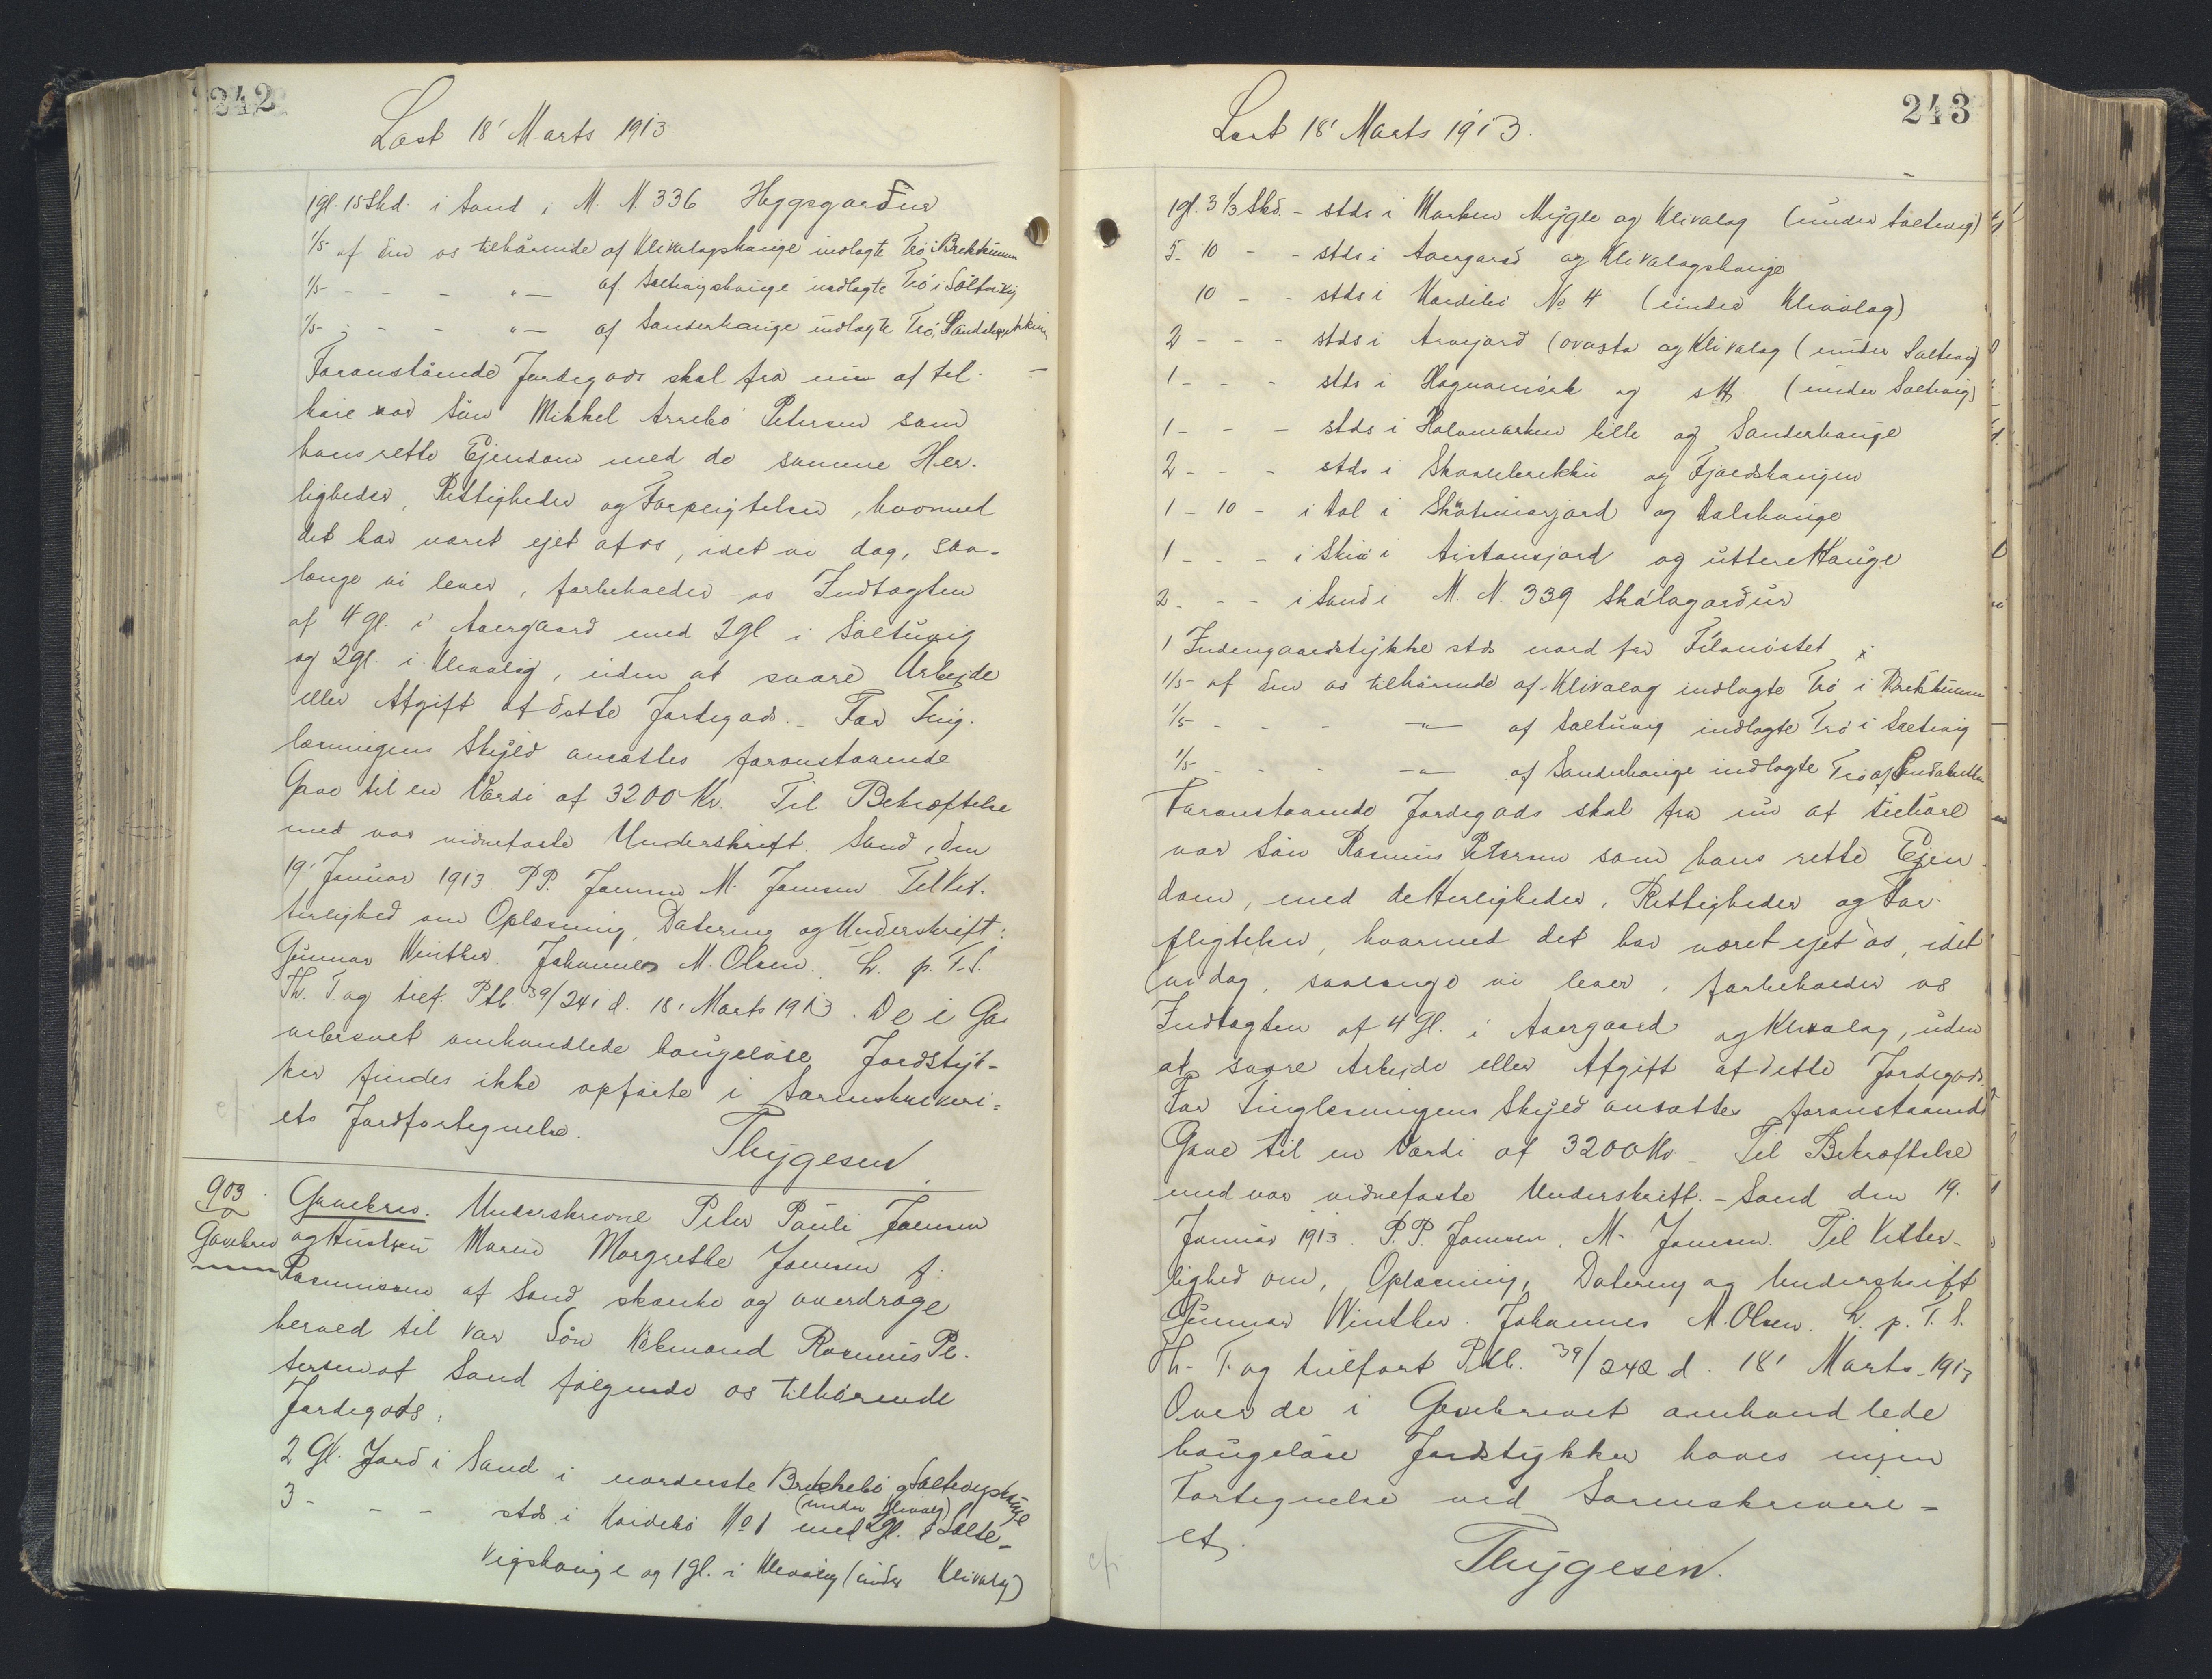 242
Læst 18' Marts 1913
1gl. 15 Skd. i Sand i M. N. 336 Heggsgarður
1/5 af den os tilhørende af Klivalagshauge indlagte Trö i Brekkunum
1/5 - - - " — af Saltuvigshauge indlagte Trö i Söltuvig
1/5 - - - " — af Sanderhauge indlagte Trö i
Foranstående Jordegods skal fra nu af til-
høre vor Sön Mikkel Arrebo Petersen som
hans rette Ejendom med de samme Her-
ligheder, Rettigheder og Forpligtelser, hvormed
det har været ejet af os, idet vi dog, saa-
længe vi lever, forbeholder os Indtægten
af 4 gl. i Aaergaard med 2gl i Saltuvig
og 2gl. i Klivalag, uden at svare Arbejde
eller Afgift af dette Jordegods. - For Ting-
læsningens Skyld ansættes foranstaaende
Gave til en Værdi af 3200 Kr. Til Bekræftelse
med vor vidnefaste Underskrift. Sand, den
19' Januar 1913. P.P. Joensen M. Joensen Til Vit-
terlighed om Oplæsning, Datering og Underskrift:
Gunnar Winther. Johannes M. Olsen. L. p. T. S.
Th. T. og tilf. Ptb. 39/241 d. 18' Marts 1913. De i Ga-
vebrevet omhandlede haugelöse Jordstyk-
ker findes ikke opførte i Sorenskriveri-
ets Jordfortegnelse.
Thygesen.
903
Gavebrev
Gavebrev. Underskrevne Peter Pauli Joensen
og Hustru Maren Margrethe Joensen f.
Rasmussen af Sand skænke og overdrage
herved til vor Sön Kokmand Rasmus Pe-
tersen af Sand følgende os tilhørende
Jordegods:
2 Gl. Jord i Sand i nordenste Brekkebö og Saltuvigshauge
(under Klivalag)
3 - - - stds. i Koidebö No 1 med 2gl. i Salte-
vigshauge og 1 gl. i Klivalag (under Klivalag)
243
Læst 18' Marts 1913.
1gl. 3 1/3 Skd. - stds i Marken Mygle og Klivalag (under Saltuvig)
5 - 10 - - stds i Aaergard og Klivalagshauge
10 - - stds i Koidebö No 4 (under Klivalag)
2 - - - stds i Arvejord (ovasta og Klivalag (under Saltuvig)
1 - - - stds i Hagnamørk og (under Saltuvig)
1 - - - stds i Holamarken lille og Sanderhauge
2 - - - stds i og Fjordshaugen
1 - 10 - i Dal i og Dalshauge
1 - - - i Skuö i og uttere Hauge
2 - - - i Sand i M. N. 339 Skálagarður
1 Indengaardstykke stds nord for
1/5 af den os tilhørende af Klivalag indlagte Trö i Brekkunum
1/5 - - - " — af Saltuvig indlagte Trö i Saltuvig
1/5 - - - " — af Sanderhauge indlagte Trö af
Foranstaaende Jordegods skal fra nu af tilhøre
vor Sön Rasmus Petersen som hans rette Ejen-
dom, med de Herligheder, Rettigheder og For-
pligtelser, hvormed det har været ejet os, idet
vi dog, saalænge vi lever, forbeholder os
Indtægten af 4 gl. i Aaergaard og Klivalag, uden
at svare Arbejde eller Afgift af dette Jordegods.
For Tinglæsningens Skyld ansættes foranstaaende
Gave til en Værdi af 3200 Kr. - Til Bekræftelse
med vor vidnefaste Underskrift. - Sand den 19.
Januar 1913. P.P. Joensen, M. Joensen. Til Vitter-
lighed om, Oplæsning, Datering og Underskrift
Gunnar Winther. Johannes M. Olsen. L. p. T. S.
Th. T. og tilført Ptb. 39/242 d. 18' Marts 1913
Over de i Gavebrevet omhandlede
haugelöse Jordstykker haves ingen
Fortegnelse ved Sorenskriveri-
et.
Thygesen.